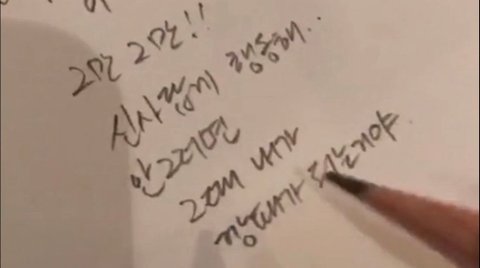 그만 그만!!
신사답게 행동해..
안그러면
그때 내가
깡패가 되는거야.